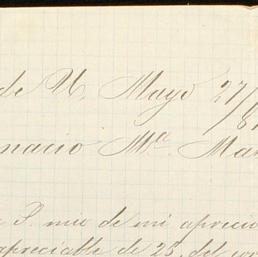 de U. Mayo 27/
nacio Ma. Mar
P. mio de mi apreci
apreciable de 25 del cor